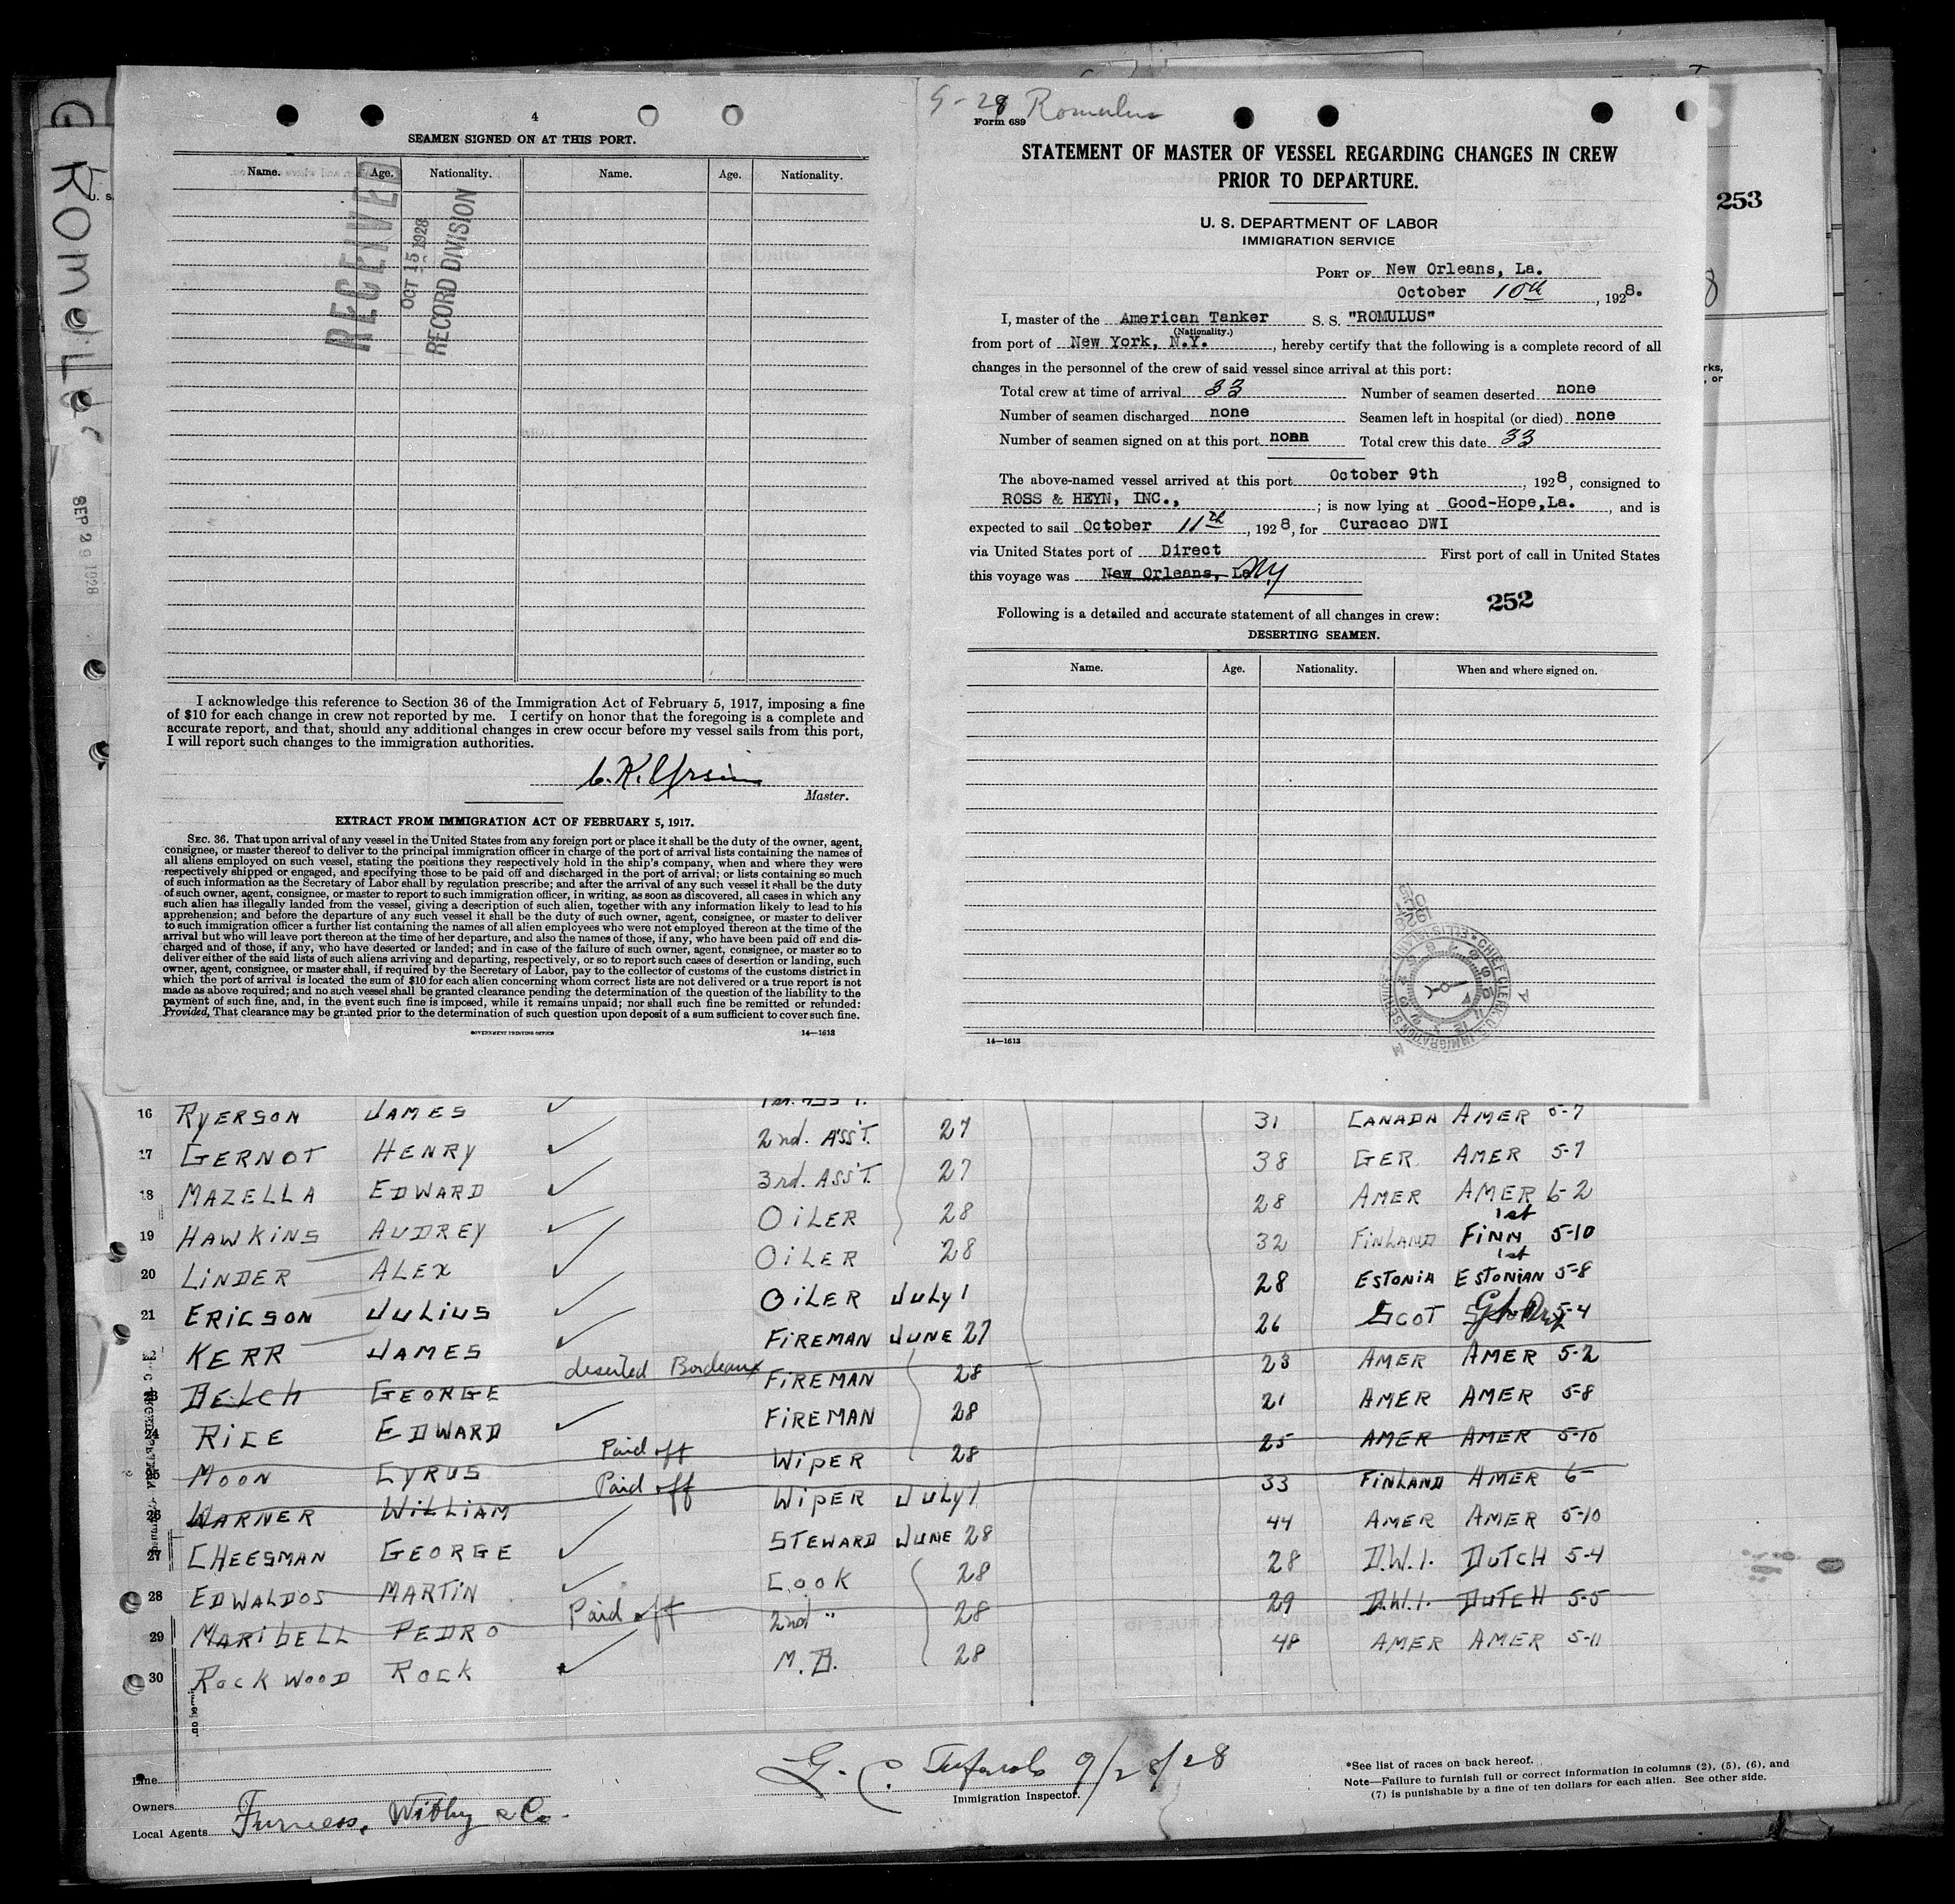 4
SEAMEN SIGNED ON AT THIS PORT.
Name. Age. Nationality. Name. Age. Nationality.
RECEIVED
OCT 15 1928
RECORD DIVISION
I acknowledge this reference to Section 36 of the Immigration Act of February 5, 1917, imposing a fine
of $10 for each change in crew not reported by me. I certify on honor that the foregoing is a complete and
accurate report, and that, should any additional changes in crew occur before my vessel sails from this port,
I will report such changes to the immigration authorities.
Master.
EXTRACT FROM IMMIGRATION ACT OF FEBRUARY 5, 1917.
SEC. 36. That upon arrival of any vessel in the United States from any foreign port or place it shall be the duty of the owner, agent,
consignee, or master thereof to deliver to the principal immigration officer in charge of the port of arrival lists containing the names of
all aliens employed on such vessel, stating the positions they respectively hold in the ship's company, when and where they were
respectively shipped or engaged, and specifying those to be paid off and discharged in the port of arrival; or lists containing so much
of such information as the Secretary of Labor shall by regulation prescribe; and after the arrival of any such vessel it shall be the duty
of such owner, agent, consignee, or master to report to such immigration officer, in writing, as soon as discovered, all cases in which any
such alien has illegally landed from the vessel, giving a description of such alien, together with any information likely to lead to his
apprehension; and before the departure of any such vessel it shall be the duty of such owner, agent, consignee, or master to deliver
to such immigration officer a further list containing the names of all alien employees who were not employed thereon at the time of the
arrival but who will leave port thereon at the time of her departure, and also the names of those, if any, who have been paid off and dis-
charged and of those, if any, who have deserted or landed; and in case of the failure of such owner, agent, consignee, or master so to
deliver either of the said lists of such aliens arriving and departing, respectively, or so to report such cases of desertion or landing, such
owner, agent, consignee, or master shall, if required by the Secretary of Labor, pay to the collector of customs of the customs district in
which the port of arrival is located the sum of $10 for each alien concerning whom correct lists are not delivered or a true report is not
made as above required; and no such vessel shall be granted clearance pending the determination of the question of the liability to the
payment of such fine, and, in the event such fine is imposed, while it remains unpaid; nor shall such fine be remitted or refunded:
Provided, That clearance may be granted prior to the determination of such question upon deposit of a sum sufficient to cover such fine.
GOVERNMENT PRINTING OFFICE 14—1613
Romulus
Form 689
STATEMENT OF MASTER OF VESSEL REGARDING CHANGES IN CREW
PRIOR TO DEPARTURE.
U. S. DEPARTMENT OF LABOR
IMMIGRATION SERVICE
PORT OF New Orleans, La.
October 10th, 1928.
I, master of the American Tanker S. S. "ROMULUS"
(Nationality.)
from port of New York, N.Y., hereby certify that the following is a complete record of all
changes in the personnel of the crew of said vessel since arrival at this port:
Total crew at time of arrival 33 Number of seamen deserted none
Number of seamen discharged none Seamen left in hospital (or died) none
Number of seamen signed on at this port Total crew this date 33
The above-named vessel arrived at this port October 9th, 1928, consigned to
ROSS & HEYN, INC., ; is now lying at Good-Hope,La., and is
expected to sail October 11th, 1928, for Curacao DWI
via United States port of Direct First port of call in United States
this voyage was New Orleans, La NY
Following is a detailed and accurate statement of all changes in crew: 252
DESERTING SEAMEN.
Name. Age. Nationality. When and where signed on.
14—1613
253
SEP 29 1928
16 RYERSON JAMES
17 GERNOT HENRY 2nd. ASS'T. 27 31 CANADA AMER 5-7
18 MAZELLA EDWARD 3rd. ASS'T. 27 38 GER AMER 5-7
19 HAWKINS AUDREY OILER 28 28 AMER AMER 6-2
20 LINDER ALEX OILER 28 32 FINLAND FINN 5-10
21 ERICSON JULIUS OILER JULY 1 28 ESTONIA ESTONIAN 5-8
KERR JAMES FIREMAN JUNE 27 26 SCOT 5-4
23 BELCH GEORGE deserted Bordeaux FIREMAN 28 23 AMER AMER 5-2
24 RICE EDWARD FIREMAN 28 21 AMER AMER 5-8
25 MOON CYRUS Paid off WIPER 28 25 AMER AMER 5-10
26 WARNER WILLIAM Paid off WIPER JULY 1 33 FINLAND AMER 6-
27 CHEESMAN GEORGE STEWARD JUNE 28 44 AMER AMER 5-10
28 EDWALDOS MARTIN COOK 28 28 D.W.I. DUTCH 5-4
29 MARIBELL PEDRO Paid off 2nd " 28 29 D.W.I. DUTCH 5-5
30 ROCKWOOD ROCK M.B. 28 48 AMER AMER 5-11
Line
Owners
Local Agents Furness, Withy & Co.
9/28/28
Immigration Inspector.
*See list of races on back hereof.
Note—Failure to furnish full or correct information in columns (2), (5), (6), and
(7) is punishable by a fine of ten dollars for each alien. See other side.